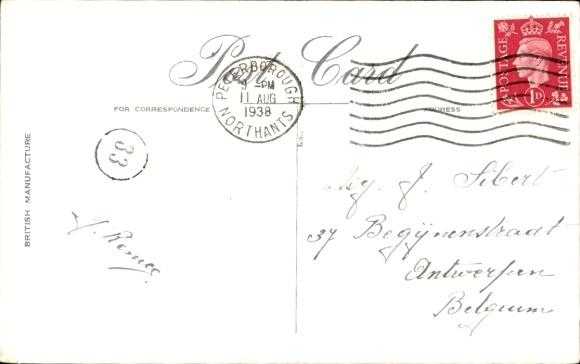 Post Card
POSTAGE REVENUE
1D
PETERBOROUGH
9 - PM
11 AUG
1938
NORTHANTS
FOR CORRESPONDENCE
ADDRESS
BRITISH MANUFACTURE
33
J. Sibert
37 Begijnenstraat
Antwerpen
Belgium